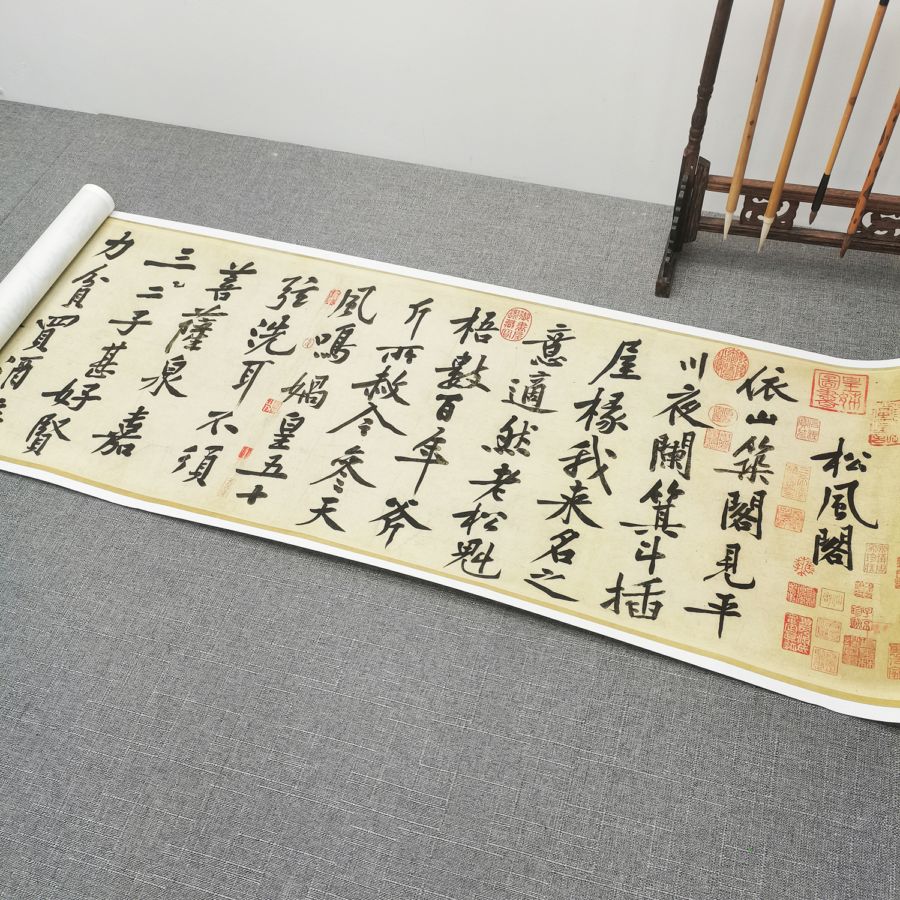 松風閣
依山築閣見平
川夜闌箕斗插
屋椽我来名之
意適然老松魁
梧數百年斧
斤所赦今參天
風鳴媧皇五十
弦洗耳不須
菩薩泉嘉
三二子甚好賢
力貧買酒